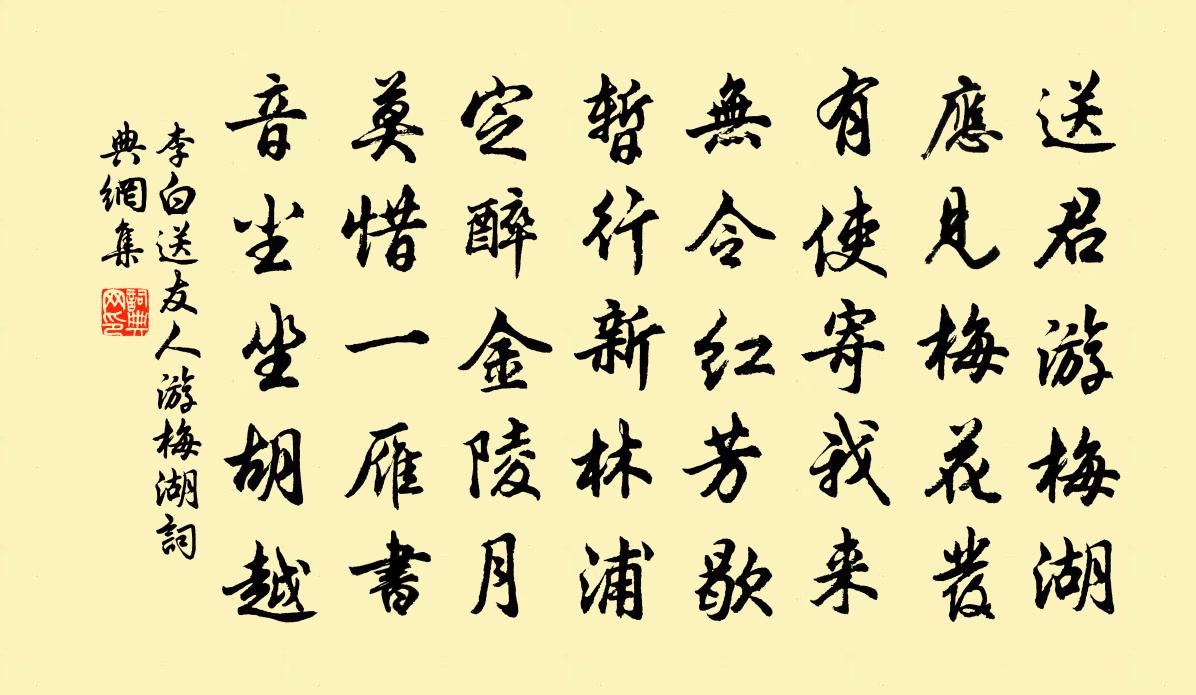 送君游梅湖
應見梅花發
有使寄我来
無令红芳歇
暫行新林浦
定醉金陵月
莫惜一雁書
音尘坐胡越
李白送友人游梅湖詞
典網集
詞典
网印